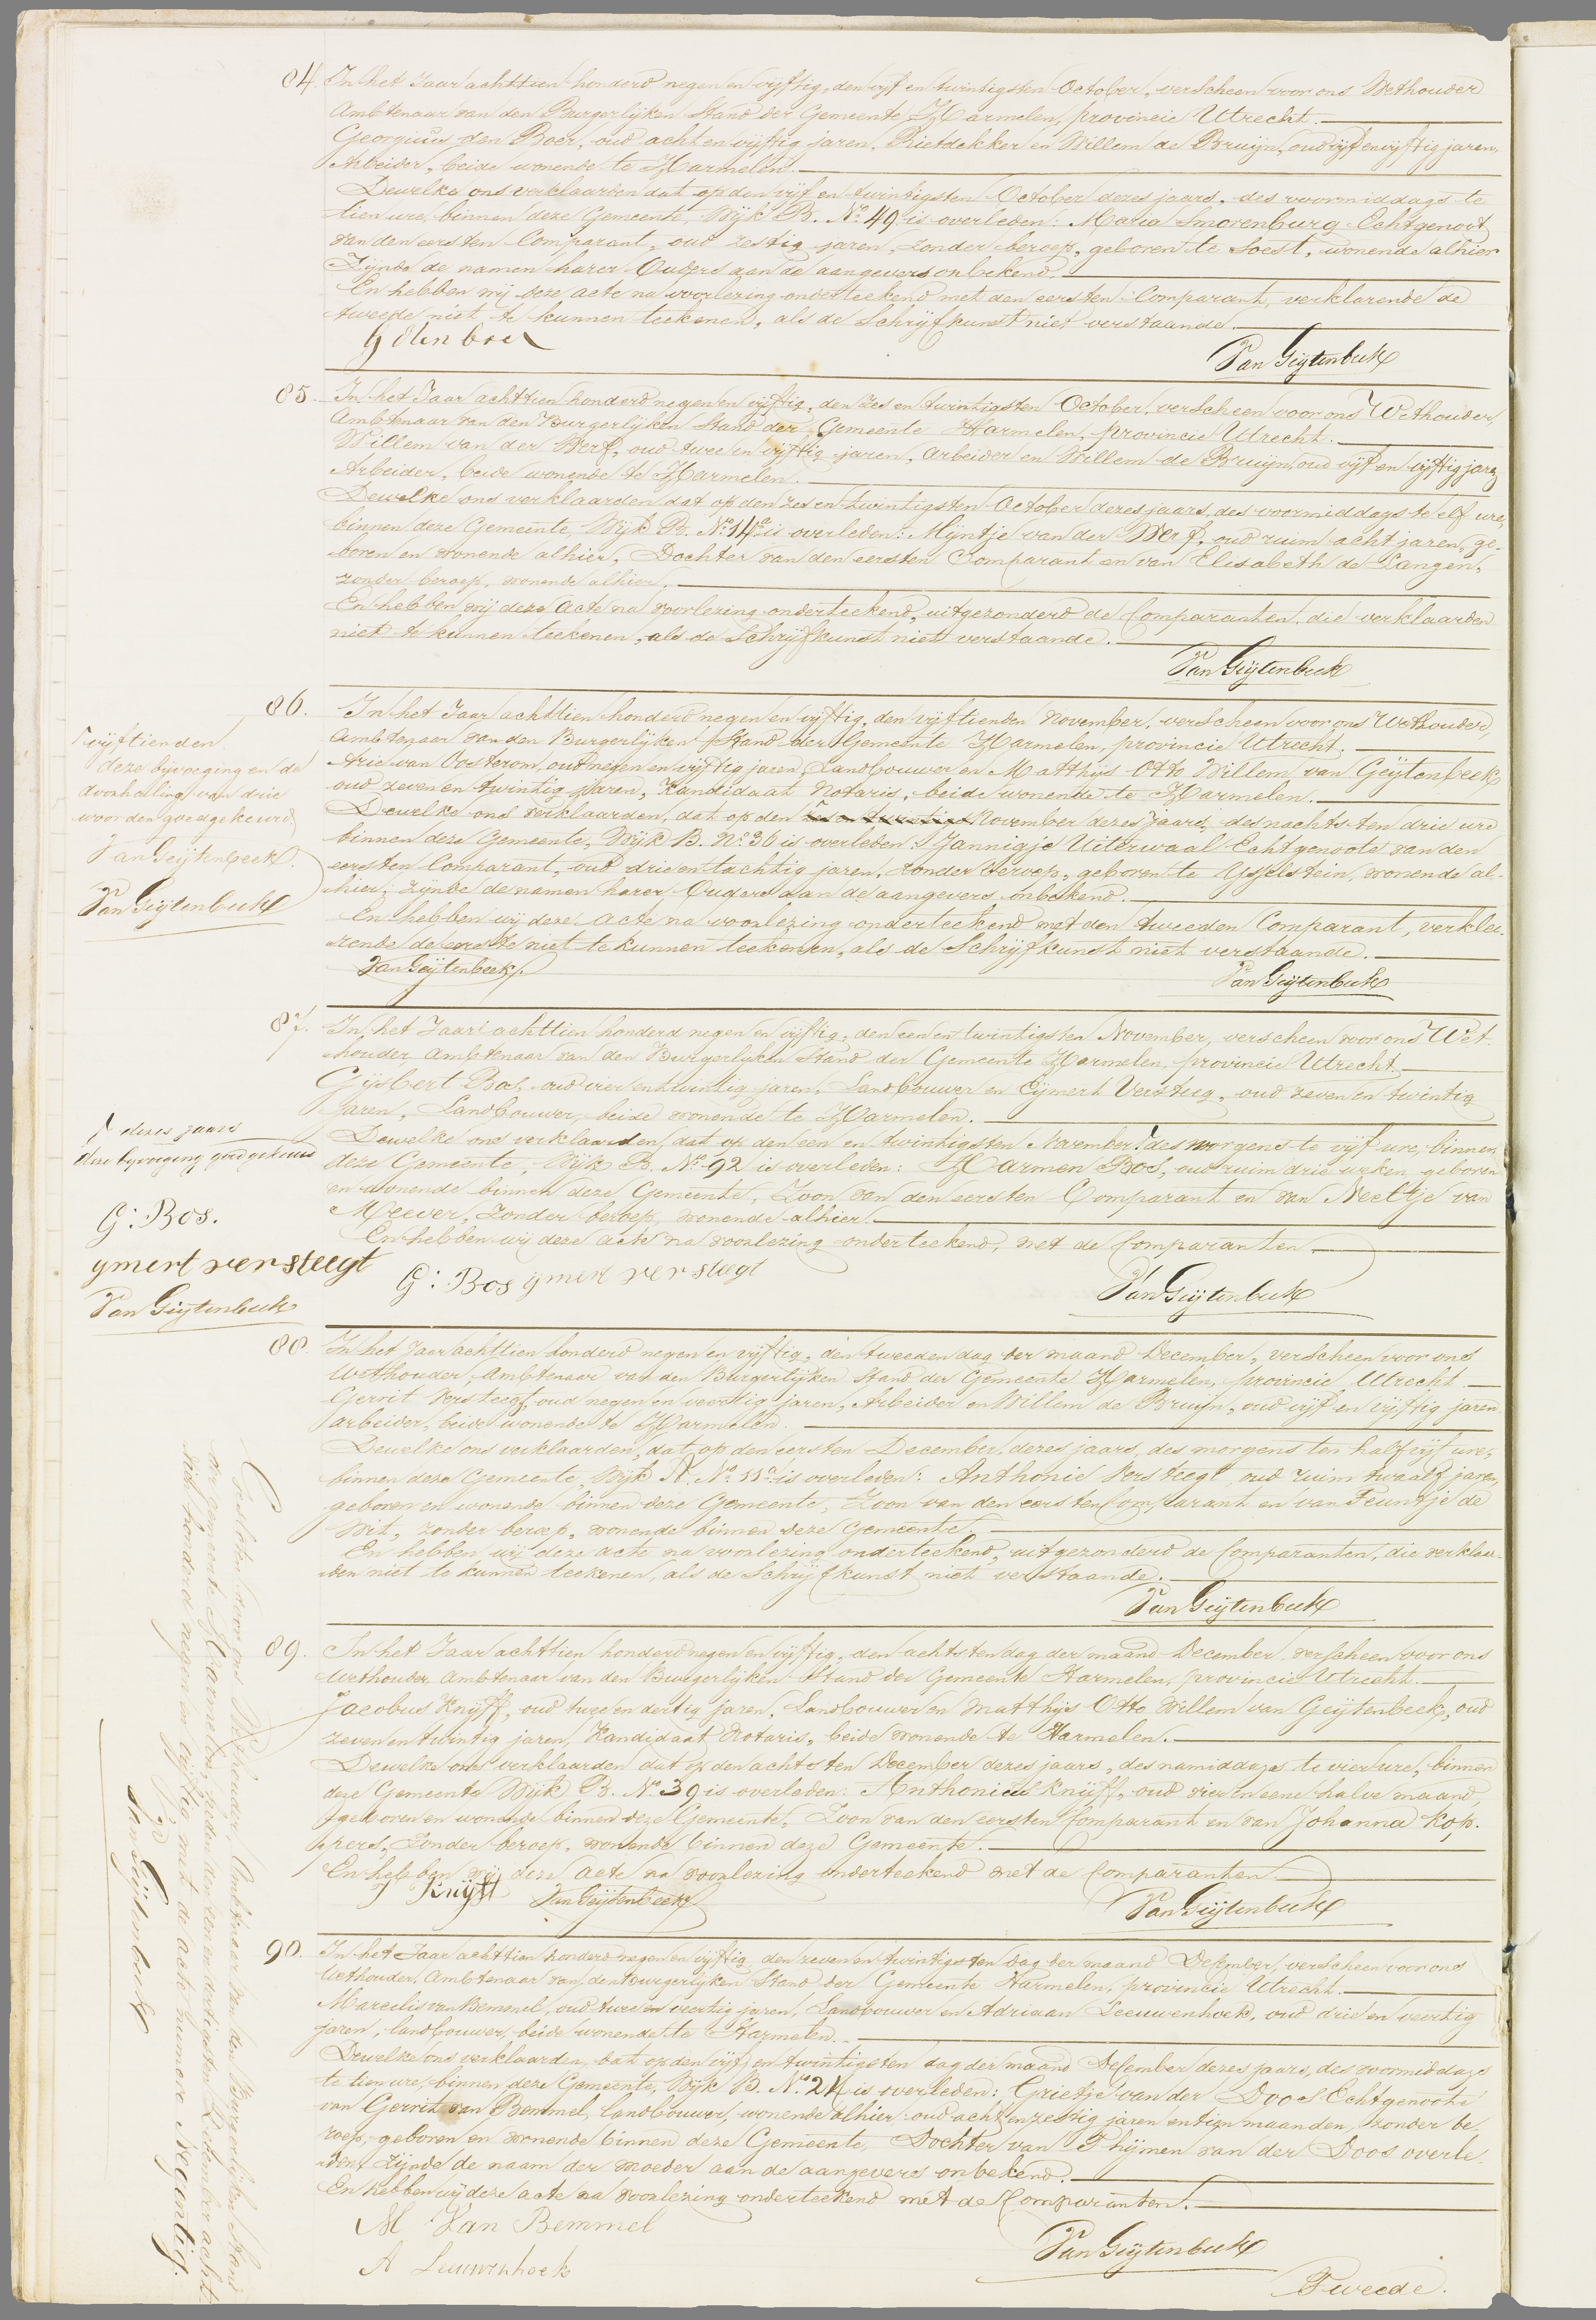 84. In het Jaar achttien honderd negen en vijftig, den vijf en twintigsten October, verscheen voor ons Wethouder
Ambtenaar van den Burgerlijken Stand der Gemeente Harmelen, provincie Utrecht.
Georgius den Boer, oud acht en vijftig jaren, Rietdekker en Willem de Bruijn, oud vijf en vijftig jaren,
Arbeider, beide wonende te Harmelen.
Dewelke ons verklaarden dat op den vijf en twintigsten October dezes jaars, des voormiddags te
tien ure, binnen deze Gemeente, Wijk B. No. 49 is overleden: Maria Smorenburg Echtgenoot
van den eersten Comparant, oud zestig jaren, zonder beroep, geboren te Soest, wonende alhier
Zijnde de namen harer Ouders aan de aangevers onbekend.
En hebben wij deze acte na voorlezing onderteekend met den eersten Comparant, verklarende de
tweede niet te kunnen teekenen, als de Schrijfkunst niet verstaande.
G den boer
Van Geijtenbeek
85. In het Jaar achttien honderd negen en vijftig, den zes en twintigsten October, verscheen voor ons Wethouder,
Ambtenaar van den Burgerlijken Stand der Gemeente Harmelen, provincie Utrecht.
Willem van der Werf, oud twee en vijftig jaren, Arbeider en Willem de Bruijn, oud vijf en vijftig jaren
Arbeider, beide wonende te Harmelen.
Dewelke ons verklaarden dat op den zes en twintigsten October dezes jaars, des voormiddags te elf ure,
binnen deze Gemeente, Wijk B. No. 14a is overleden: Mijntje van der Werf, oud ruim acht jaren, ge-
boren en wonende alhier, Dochter van den eersten Comparant en van Elisabeth de Langen,
zonder beroep, wonende alhier.
En hebben wij deze acte na voorlezing onderteekend, uitgezonderd de Comparanten, die verklaarden
niet te kunnen teekenen, als de Schrijfkunst niet verstaande.
Van Geijtenbeek
86. In het Jaar achttien honderd negen en vijftig, den vijftienden November, verscheen voor ons Wethouder,
Ambtenaar van den Burgerlijken Stand der Gemeente Harmelen, provincie Utrecht.
Arie van Oosterom, oud negen en vijftig jaren, Landbouwer en Matthijs Otto Willem van Geijtenbeek
oud zeven en twintig jaren, Kandidaat Notaris, beide wonende te Harmelen.
Dewelke ons verklaarden, dat op den November dezes Jaars, des nachts ten drie ure
binnen deze Gemeente, Wijk B. No. 36 is overleden: Jannigje Uiterwaal Echtgenoote van den
eersten Comparant, oud drie en tachtig jaren, zonder beroep, geboren te IJsselstein, wonende al-
hier, zijnde de namen harer Ouders aan de aangevers onbekend.
En hebben wij deze acte na voorlezing onderteekend met den tweeden Comparant, verkla-
rende de eerste niet te kunnen teekenen, als de Schrijfkunst niet verstaande.
Van Geijtenbeek.
Van Geijtenbeek
vijftienden
deze bijvoeging en de
doorhaling van drie
woorden goedgekeurd
Van Geijtenbeek.
Van Geijtenbeek
87. In het Jaar achttien honderd negen en vijftig, den een en twintigsten November, verscheen voor ons Wet-
houder, Ambtenaar van den Burgerlijken Stand der Gemeente Harmelen, provincie Utrecht.
Gijsbert Bos, oud vier en twintig jaren, Landbouwer en Eijmert Versteeg, oud zeven en twintig
Jaren, Landbouwer, beide wonende te Harmelen.
Dewelke ons verklaarden, dat op den een en twintigsten November des morgens te vijf ure, binnen
deze Gemeente, Wijk B. No. 92 is overleden: Harmen Bos, oud ruim drie weken, geboren
en wonende binnen deze Gemeente, Zoon van den eersten Comparant en van Neeltje van
Meever, zonder beroep, wonende alhier.
En hebben wij deze acte na voorlezing onderteekend, met de Comparanten.
G: Bos ymert versteegt
Van Geijtenbeek
dezes jaars
deze bijvoeging goedgekeurd
G: Bos.
ymert versteegt
Van Geijtenbeek
88. In het Jaar achttien honderd negen en vijftig, den tweeden dag der maand December, verscheen voor ons
Wethouder, Ambtenaar van den Burgerlijken Stand der Gemeente Harmelen, provincie Utrecht
Gerrit Versteegt, oud negen en veertig jaren, Arbeider en Willem de Bruijn, oud vijf en vijftig jaren
arbeider, beide wonende te Harmelen.
Dewelke ons verklaarden, dat op den eersten December dezes jaars, des morgens ten half vijf ure,
binnen deze Gemeente, Wijk A. No. 11a is overleden: Anthonie Versteegt, oud ruim twaalf jaren,
geboren en wonende binnen deze Gemeente, Zoon van den eersten Comparant en van Teuntje de
Wit, zonder beroep, wonende binnen deze Gemeente.
En hebben wij deze acte na voorlezing onderteekend, uitgezonderd de Comparanten, die verklaar-
den niet te kunnen teekenen, als de Schrijfkunst niet verstaande.
Van Geijtenbeek
89. In het Jaar achttien honderd negen en vijftig, den achtsten dag der maand December, verscheen voor ons
Wethouder, Ambtenaar van den Burgerlijken Stand der Gemeente Harmelen, provincie Utrecht.
Jacobus Knijff, oud twee en dertig jaren, Landbouwer en Matthijs Otto Willem van Geijtenbeek, oud
zeven en twintig jaren, Kandidaat Notaris, beide wonende te Harmelen.
Dewelke ons verklaarden dat op den achtsten December dezes jaars, des namiddags te vier ure, binnen
deze Gemeente Wijk B. No. 39 is overleden: Anthonius Knijff, oud vier en eene halve maand,
geboren en wonende binnen deze Gemeente, Zoon van den eersten Comparant en van Johanna Kop-
pers, zonder beroep, wonende binnen deze Gemeente.
En hebben wij deze acte na voorlezing onderteekend met de Comparanten.
J Knijff Van Geijtenbeek
Van Geijtenbeek
90. In het Jaar achttien honderd negen en vijftig, den zeven en twintigsten dag der maand December, verscheen voor ons
Wethouder, Ambtenaar van den Burgerlijken Stand der Gemeente Harmelen, provincie Utrecht.
Marcelis van Bemmel, oud twee en veertig jaren, Landbouwer en Adriaan Leeuwenhoek, oud drie en veertig
jaren, landbouwer, beide wonende te Harmelen.
Dewelke ons verklaarden, dat op den vijf en twintigsten dag der maand December dezes jaars, des voormiddags
te tien ure, binnen deze Gemeente, Wijk B. No. 24 is overleden: Grietje van der Doos Echtgenoote
van Gerrit van Bemmel, landbouwer, wonende alhier, oud acht en zestig jaren en tien maanden, zonder be-
roep, geboren en wonende binnen deze Gemeente, Dochter van Thijmen van der Doos overle-
den, zijnde de naam der moeder aan de aangevers onbekend.
En hebben wij deze acte na voorlezing onderteekend met de Comparanten.
M Van Bemmel
A Leeuwenhoek
Van Geijtenbeek
Tweede.
Gesloten door ons Wethouder, Ambtenaar van den Burgerlijken Stand
der gemeente Harmelen, heden den een en dertigsten December acht-
tien honderd negen en vijftig met de acte numero Negentig.
Van Geijtenbeek